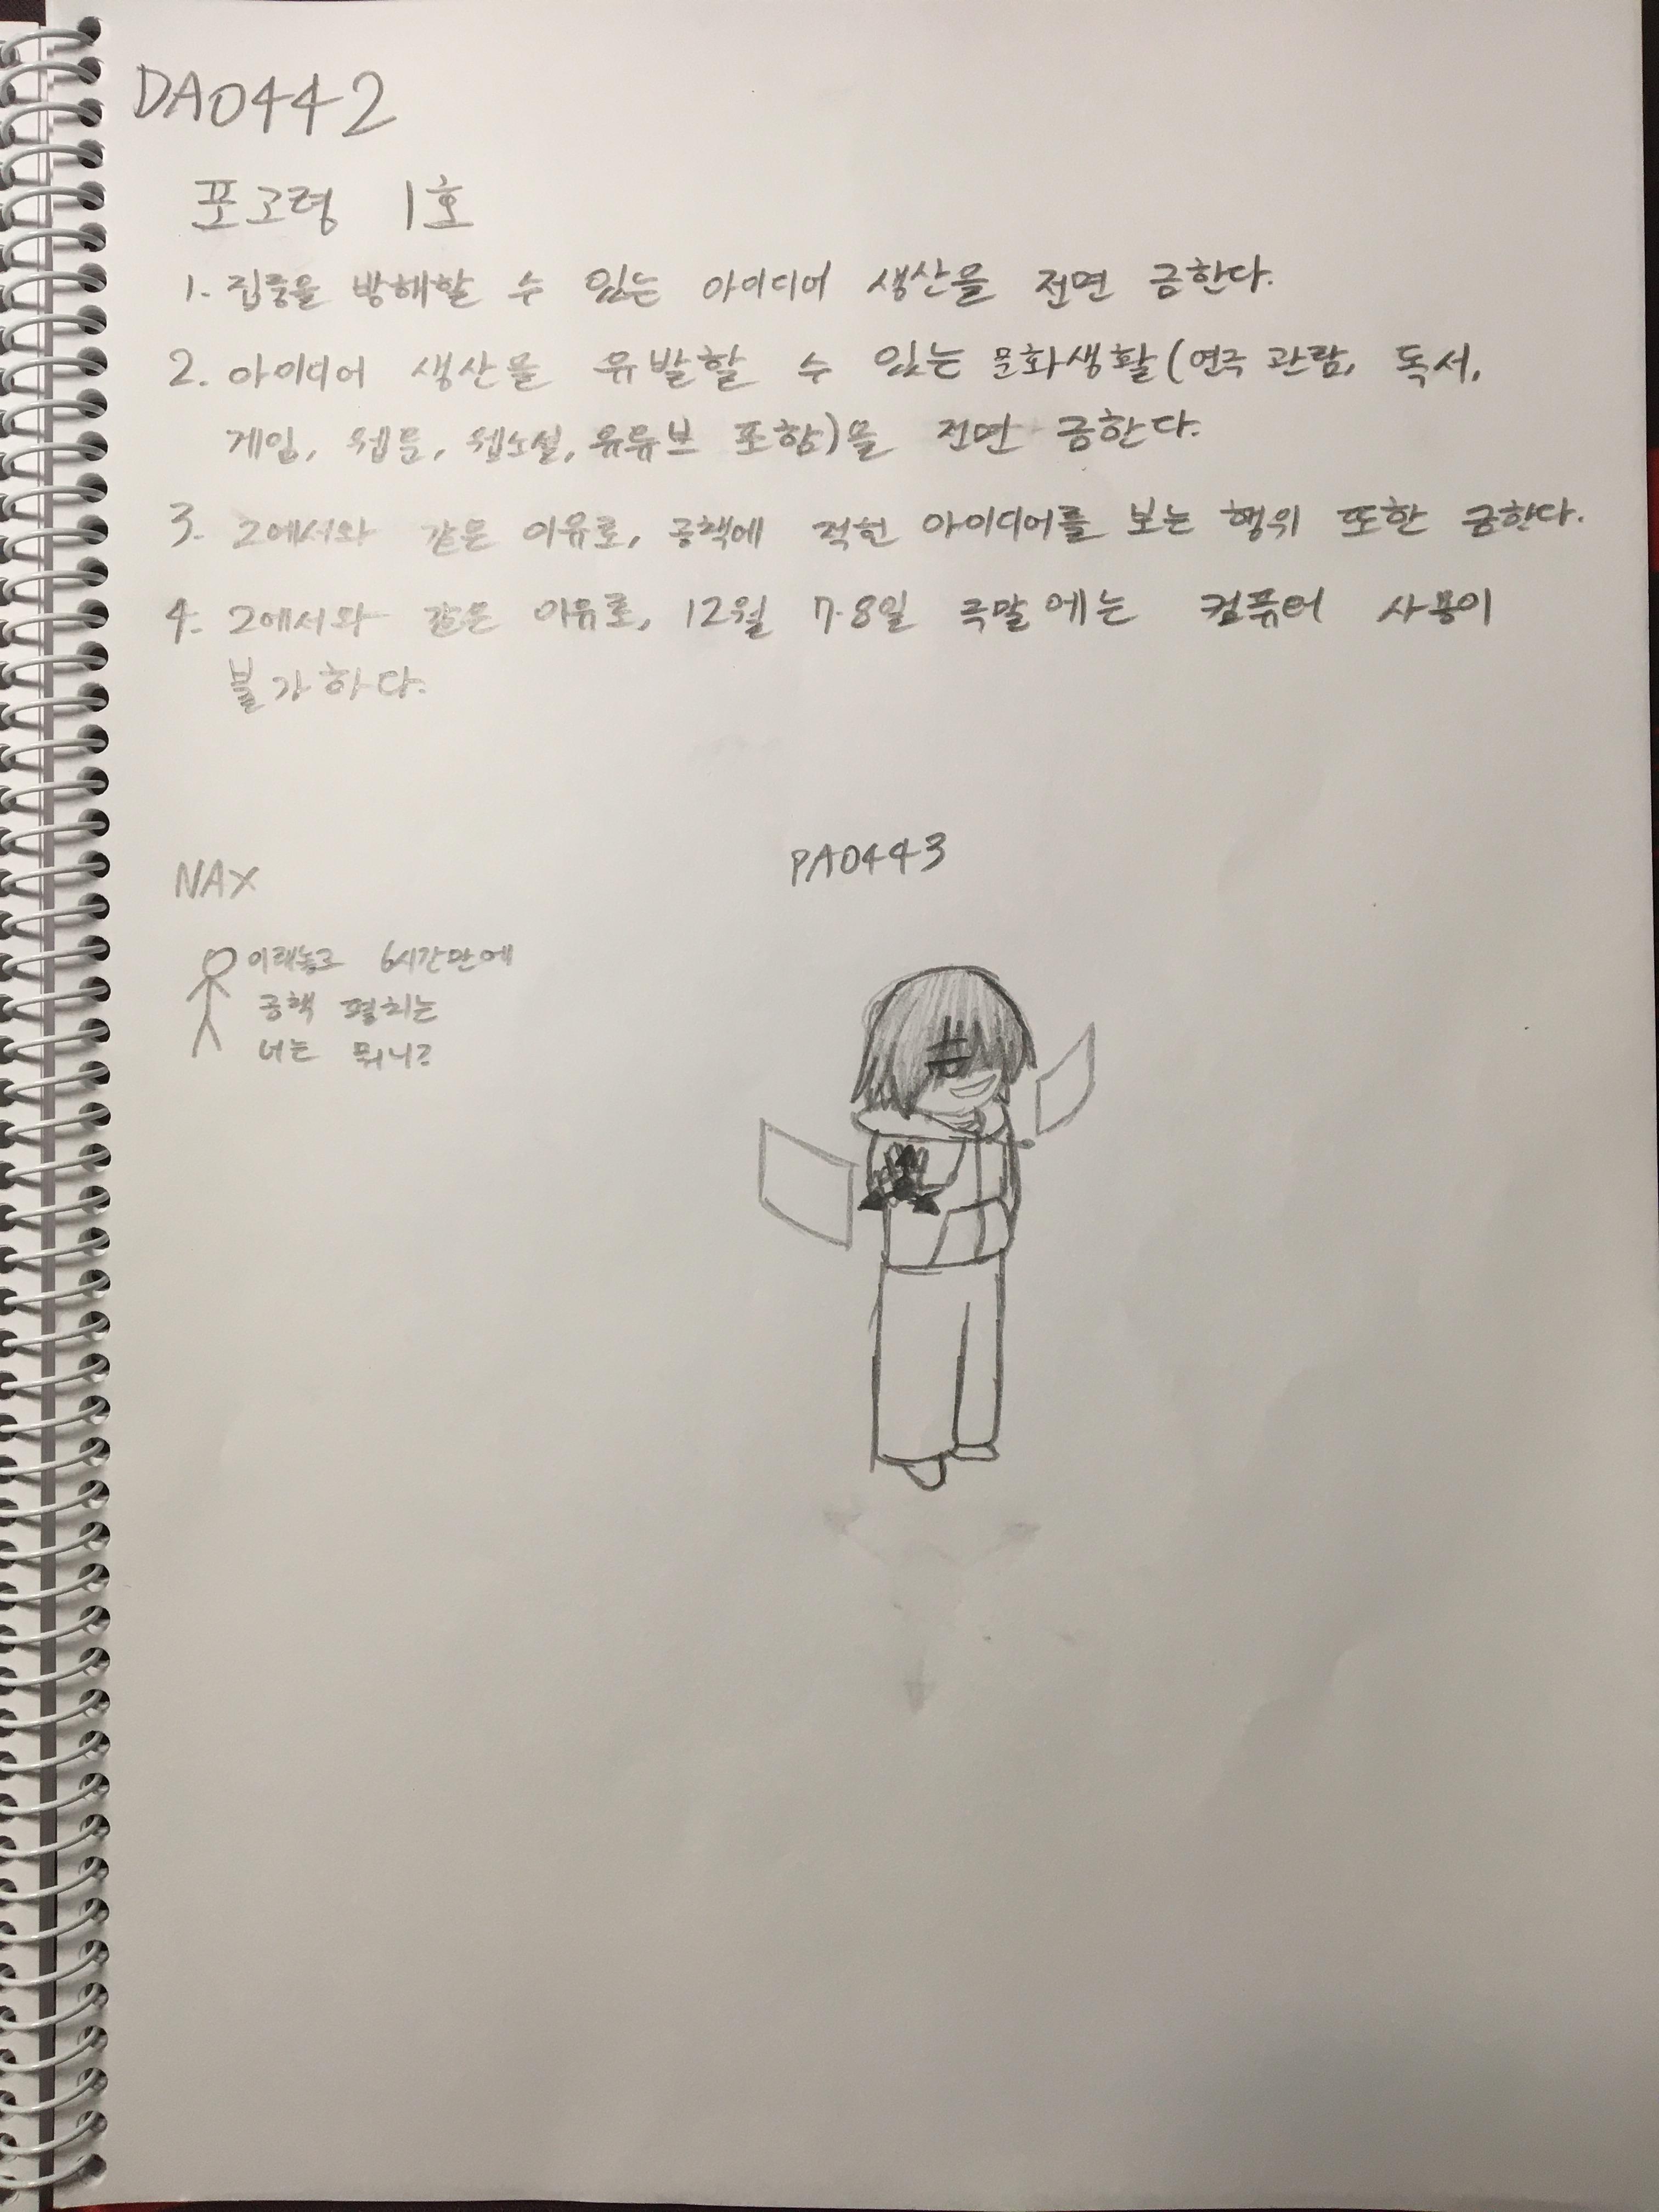 DA0442
포고령 1호
1. 집중을 방해할 수 있는 아이디어 생산을 전면 금한다.
2. 아이디어 생산을 유발할 수 있는 문화생활(연극 관람, 독서,
게임, 웹툰, 웹소설, 유튜브 포함)을 전면 금한다.
3. 2에서와 같은 이유로, 공책에 적힌 아이디어를 보는 행위 또한 금한다.
4. 2에서와 같은 이유로, 12월 7·8일 주말에는 컴퓨터 사용이
불가하다.
NAX
이래놓고 6시간만에
공책 펼치는
너는 뭐니?
PA0443